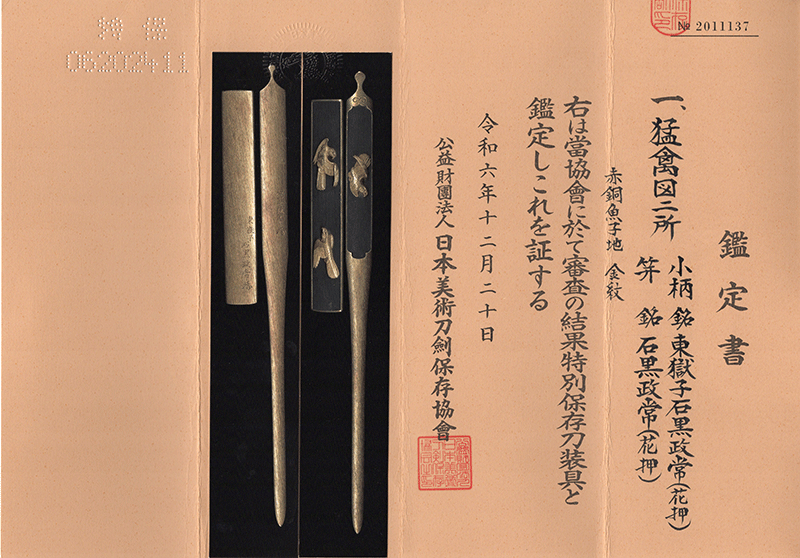 № 2011137
鑑定書
一、猛禽図二所
小柄 銘 東嶽子石黒政常(花押)
笄 銘 石黒政常(花押)
赤銅魚子地 金紋
右は當協會に於て審査の結果特別保存刀装具と
鑑定しこれを証する
令和六年十二月二十日
公益財團法人 日本美術刀劍保存協會
特 保
06202411